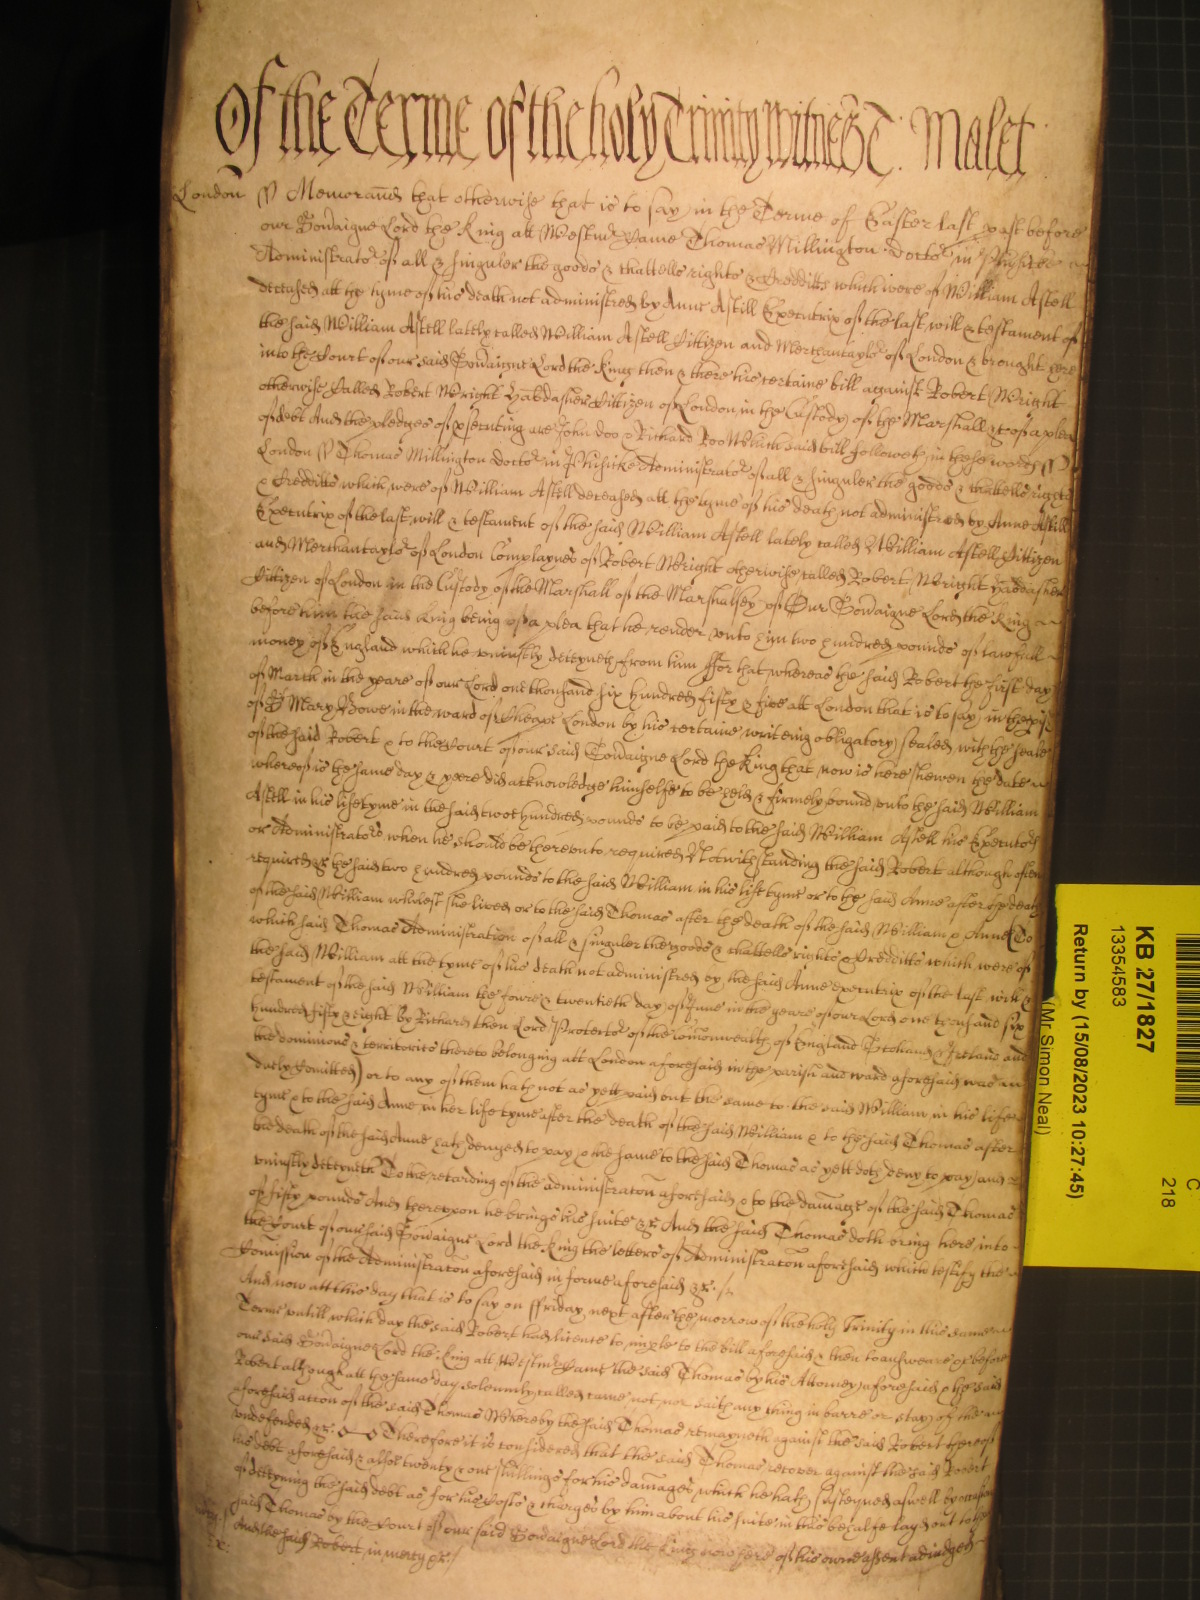 Of the Terme of the holy Trinity Witnes T: Malet
London ss Memorand that otherwise that is to say in the Terme of Easter last past before
our Soveraigne Lord the King att Westmr Came Thomas Millington Doctor in Phisicke
Administrator of all & singuler the goods & chattells rights & Credditts which were of William Astell
deceased att the tyme of his death not administred by Anne Astell Executrix of the last will & testament of
the said William Astell lately called William Astell Cittizen and Merchantaylor of London & brought here
into the Court of our said Soveraigne Lord the King then & there his certaine bill against Robert Wright
otherwise Called Robert Wright Habdasher Cittizen of London in the Custody of the Marshall &c of a plea
of debt And the pledges of psecuting are John doo & Richard Roo Which said bill followeth in these words ss
London ss Thomas Millington Doctor in Phisicke Administrator of all & singuler the goods & chattells rights
& Credditts which were of William Astell deceased att the tyme of his death not administred by Anne Astell
Executrix of the last will & testament of the said William Astell lately called William Astell Cittizen
and Merchantaylor of London Complaynes of Robert Wright otherwise called Robert Wright Habdasher
Cittizen of London in the Custody of the Marshall of the Marshalsey of Our Soveraigne Lord the King
before him the said King being of a plea that he render unto him two hundred pounds of lawfull
money of England which he uniustly deteyneth from him ffor that whereas the said Robert the first day
of March in the yeare of our Lord one thousand six hundred fifty & five att London that is to say in the pish
of St Mary Bowe in the ward of Cheape London by his certaine writeing obligatory sealed with the seale
of the said Robert & to the Court of our said Soveraigne Lord the King that now is here shewen the date
whereof is the same day & yeere did acknowledge himselfe to be held & firmely bound unto the said William
Astell in his life tyme in the said two hundred pounds to be paid to the said William Astell his Executors
or Administrators when he should be thereunto required Notwithstanding the said Robert although often
required &c the said two hundred pounds to the said William in his life tyme or to the said Anne after the death
of the said William whilest she lived or to the said Thomas after the death of the said William & Anne (To
which said Thomas Administration of all & singuler the goods & chattells rights & Credditts which were of
the said William att the tyme of his death not administred by the said Anne executrix of the last will &
testament of the said William the fowre & twentieth day of June in the yeare of our Lord one thousand six
hundred fifty & eight by Richard then Lord Protector of the Comonwealth of England Scotland & Ireland and
the dominions & territories thereto belonging att London aforesaid in the parish and ward aforesaid was in
duely Comitted) or to any of them hath not as yett paid but the same to the said William in his life
tyme & to the said Anne in her life tyme after the death of the said William & to the said Thomas after
the death of the said Anne hath denyed to pay & the same to the said Thomas as yett doth deny to pay and
uniustly deteyneth To the retarding of the administraton aforesaid & to the damage of the said Thomas
of fifty pounds And thereupon he brings his suite &c And the said Thomas doth bring here into
the Court of our said Soveraigne Lord the King the letters of Administraton aforesaid which testify the
Comission of the Administraton aforesaid in forme aforesaid &c
And now att this day that is to say on ffriday next after the morrow of the holy Trinity in this same
Terme untill which day the said Robert had licence to imple to the bill aforesaid & then to answeare &c before
our said Soveraigne Lord the King att Westmr Came the said Thomas by his Attorney aforesaid & the said
Robert although att the same day solemnly called came not nor saith any thing in barre or stay of the
aforesaid action of the said Thomas Whereby the said Thomas remayneth against the said Robert thereof
undefended &c Therefore it is considered that the said Thomas recover against the said Robert
his debt aforesaid & also twenty & one shillings for his damages which he hath susteyned aswell by occasion
of deteyning the said debt as for his Costs & charges by him about his suite in this behalfe layd out to the
said Thomas by the Court of our said Soveraigne Lord the King now here of his owne assent adiudged
And the said Robert in mercy &c
KB 27/1827
13354583
Return by (15/08/2023 10:27:45)
(Mr Simon Neal)
C
218